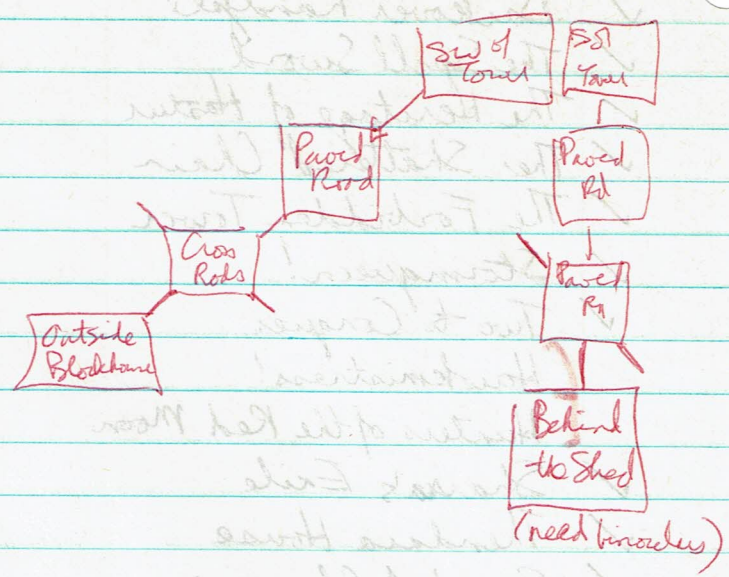 SW of
Tower
S of
Tower
Paved
Road
Paved
Rd
Cross
Rods
Paved
Outside
Blockhouse
Behind
the Shed
(need binoculars)